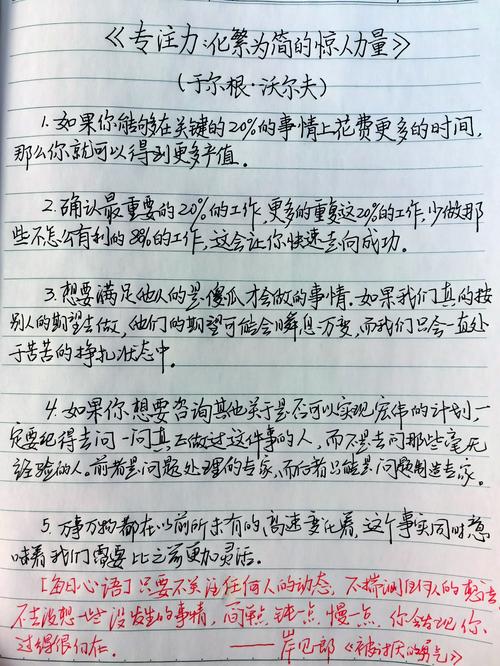 《专注力:化繁为简的惊人力量》
(于尔根·沃尔夫)
1.如果你能够在关键的20%的事情上花费更多的时间,
那么你就可以得到更多产值。
2.确认最重要的20%的工作,更多的重复这20%的工作,少做那
些不怎么有利的80%的工作,这会让你快速走向成功。
3.想要满足他人的是傻瓜才会做的事情。如果我们真的按
别人的期望去做,他们的期望可能会瞬息万变,而我们只会一直处
于苦苦的挣扎状态中。
4.如果你想要咨询其他关于是否可以实现宏伟的计划,一
定要记得去问一问真正做过这件事的人,而不是去问那些毫无
经验的人。前者是问题处理的专家,而后者只能是问题制造专家。
5.万事万物都在以前所未有的高速变化着,这个事实同时意
味着我们需要比之前更加灵活。
[每日心语]只要不关注任何人的动态,不揣测任何人的
不去设想一些没发生的事情,简单点,钝一点,慢一点,你会发现你
过得很自在。
——岸见一郎《被讨厌的勇气》